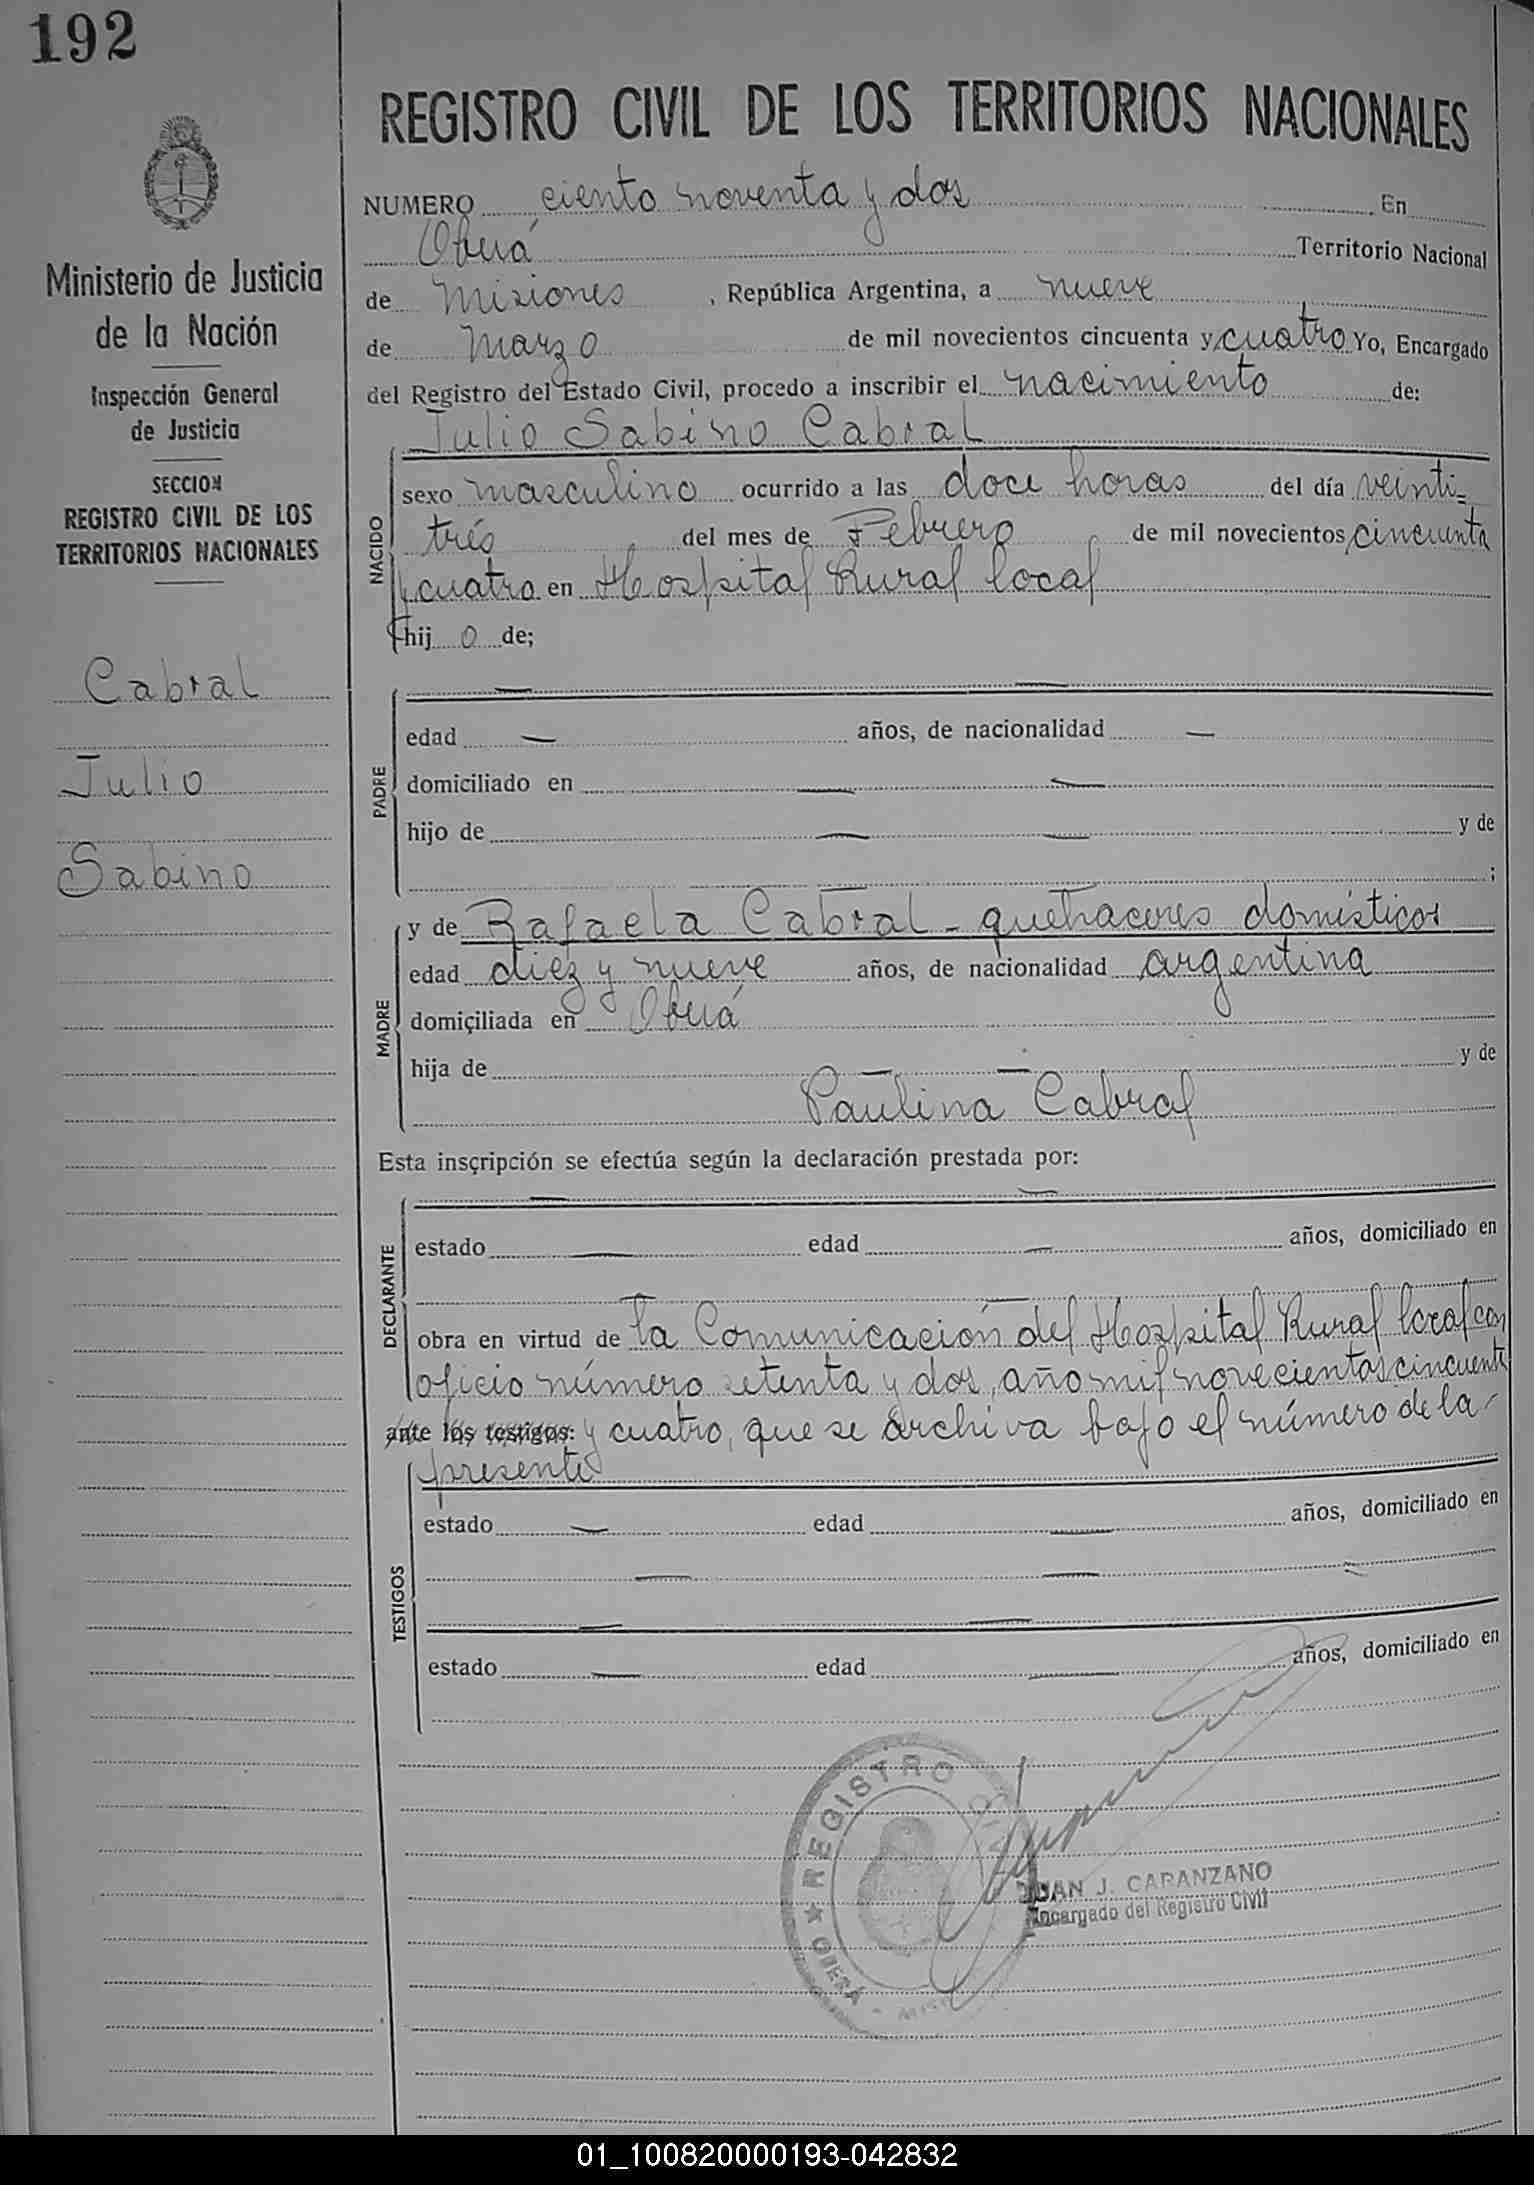 192
REGISTRO CIVIL DE LOS TERRITORIOS NACIONALES
NUMERO ciento noventa y dos En
Oberá Territorio Nacional
de Misiones, República Argentina, a nueve
de Marzo de mil novecientos cincuenta y cuatro Yo, Encargado
del Registro del Estado Civil, procedo a inscribir el nacimiento de:
Julio Sabino Cabral
NACIDO
sexo masculino ocurrido a las doce horas del día veinti=
trés del mes de Febrero de mil novecientos cincuenta
y cuatro en Hospital Rural local
hij o de;
Ministerio de Justicia
de la Nación
Inspección General
de Justicia
SECCION
REGISTRO CIVIL DE LOS
TERRITORIOS NACIONALES
Cabral
Julio
Sabino
PADRE
— —
edad — años, de nacionalidad —
domiciliado en — —
hijo de — — y de
;
MADRE
y de Rafaela Cabral - quehaceres domésticos
edad diez y nueve años, de nacionalidad argentina
domiciliada en Oberá
hija de — — y de
Paulina Cabral
Esta inscripción se efectúa según la declaración prestada por:
DECLARANTE
— —
estado — edad — años, domiciliado en
— —
obra en virtud de la Comunicación del Hospital Rural local con
oficio número setenta y dos, año mil novecientos cincuenta
ante los testigos: y cuatro, que se archiva bajo el número de la
presente
TESTIGOS
estado — edad — años, domiciliado en
— —
— —
estado — edad — años, domiciliado en
REGISTRO
OBERÁ -
JUAN J. CAPANZANO
Encargado del Registro Civil
01_100820000193-042832